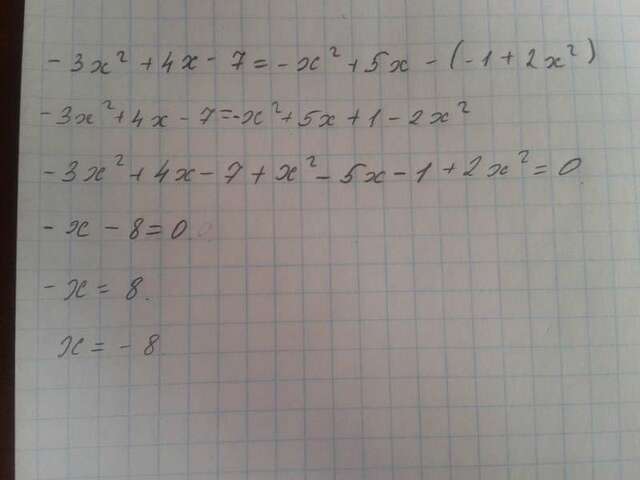 -3x² + 4x - 7 = -x² + 5x - (-1 + 2x²)
-3x² + 4x - 7 = -x² + 5x + 1 - 2x²
-3x² + 4x - 7 + x² - 5x - 1 + 2x² = 0
-x - 8 = 0
-x = 8.
x = -8